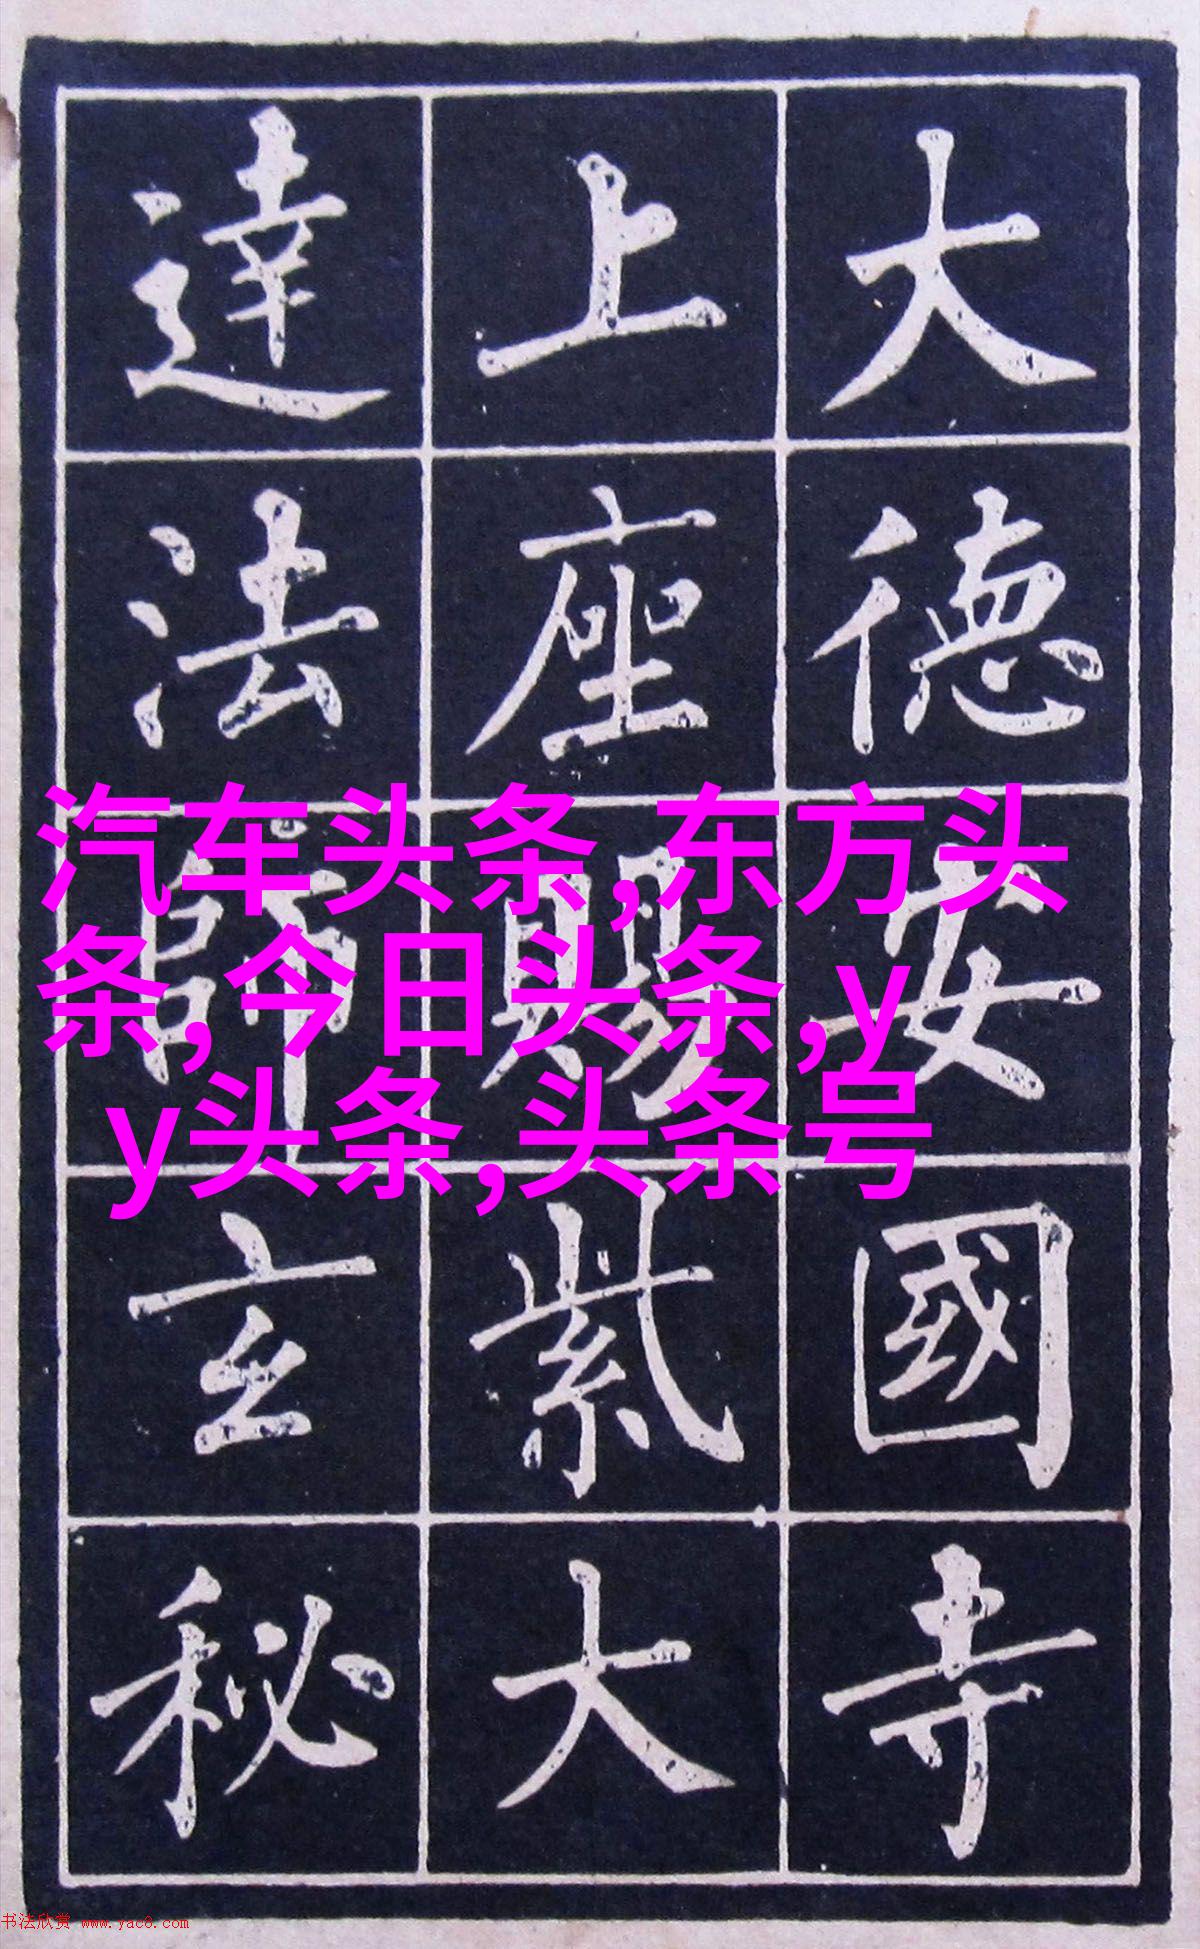 大德安國寺
上座賜紫大
達法師玄秘
汽车头条,东方头
条,今日头条,y
y头条,头条号
书法欣赏 www.yac8.com